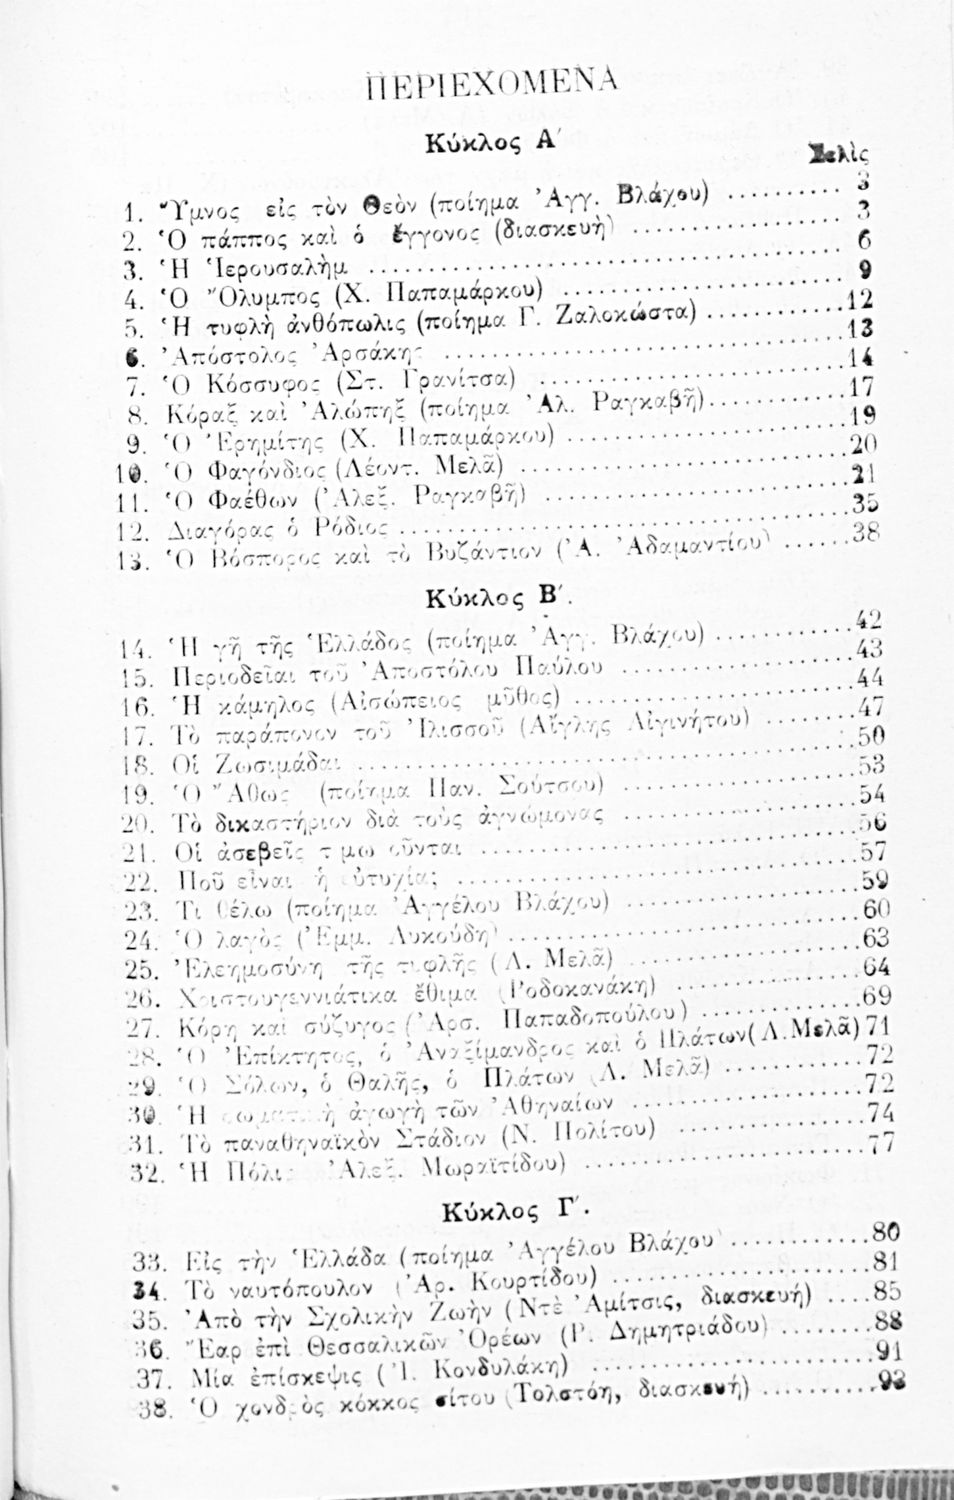 ΠΕΡΙΕΧΟΜΕΝΑ
Κύκλος Α΄
Σελὶς
1. Ὕμνος εἰς τὸν Θεὸν (ποίημα Ἀγγ. Βλάχου) .......... 3
2. Ὁ πάππος καὶ ὁ ἔγγονος (διασκευὴ) .......... 3
3. Ἡ Ἱερουσαλὴμ .......... 6
4. Ὁ Ὄλυμπος (Χ. Παπαμάρκου) .......... 9
5. Ἡ τυφλὴ ἀνθόπωλις (ποίημα Γ. Ζαλοκώστα) .......... 12
6. Ἀπόστολος Ἀρσάκης .......... 13
7. Ὁ Κόσσυφος (Στ. Γρανίτσα) .......... 14
8. Κόραξ καὶ Ἀλώπηξ (ποίημα Ἀλ. Ραγκαβῆ) .......... 17
9. Ὁ Ἐρημίτης (Χ. Παπαμάρκου) .......... 19
10. Ὁ Φαγόνδιος (Λέοντ. Μελᾶ) .......... 20
11. Ὁ Φαέθων (Ἀλεξ. Ραγκαβῆ) .......... 21
12. Διαγόρας ὁ Ρόδιος .......... 35
13. Ὁ Βόσπορος καὶ τὸ Βυζάντιον (Ἀ. Ἀδαμαντίου) ...... 38
Κύκλος Β΄.
14. Ἡ γῆ τῆς Ἑλλάδος (ποίημα Ἀγγ. Βλάχου) .......... 42
15. Περιοδεῖαι τοῦ Ἀποστόλου Παύλου .......... 43
16. Ἡ κάμηλος (Αἰσώπειος μῦθος) .......... 44
17. Τὸ παράπονον τοῦ Ἰλισσοῦ (Αἴγλης Αἰγινήτου) .......... 47
18. Οἱ Ζωσιμάδαι .......... 50
19. Ὁ Ἄθως (ποίημα Παν. Σούτσου) .......... 53
20. Τὸ δικαστήριον διὰ τοὺς ἀγνώμονας .......... 54
21. Οἱ ἀσεβεῖς τιμωροῦνται .......... 56
22. Ποῦ εἶναι ἡ εὐτυχία; .......... 57
23. Τι θέλω (ποίημα Ἀγγέλου Βλάχου) .......... 59
24. Ὁ λαγὸς (Ἐμμ. Λυκούδη) .......... 60
25. Ἐλεημοσύνη τῆς τυφλῆς (Λ. Μελᾶ) .......... 63
26. Χριστουγεννιάτικα ἔθιμα (Ροδοκανάκη) .......... 64
27. Κόρη καὶ σύζυγος (Ἀρσ. Παπαδοπούλου) .......... 69
28. Ὁ Ἐπίκτητος, ὁ Ἀναξίμανδρος καὶ ὁ Πλάτων(Λ.Μελᾶ) 71
29. Ὁ Σόλων, ὁ Θαλῆς, ὁ Πλάτων (Λ. Μελᾶ) .......... 72
30. Ἡ σωματικὴ ἀγωγὴ τῶν Ἀθηναίων .......... 72
31. Τὸ παναθηναϊκὸν Στάδιον (Ν. Πολίτου) .......... 74
32. Ἡ Πόλις Ἀλεξ. Μωραϊτίδου) .......... 77
Κύκλος Γ΄.
33. Εἰς τὴν Ἑλλάδα (ποίημα Ἀγγέλου Βλάχου) .......... 80
34. Τὸ ναυτόπουλον (Ἀρ. Κουρτίδου) .......... 81
35. Ἀπὸ τὴν Σχολικὴν Ζωὴν (Ντὲ Ἀμίτσις, διασκευή) .... 85
36. Ἔαρ ἐπὶ Θεσσαλικῶν Ὀρέων (Ρ. Δημητριάδου) ........ 88
37. Μία ἐπίσκεψις (Ἰ. Κονδυλάκη) .......... 91
38. Ὁ χονδρὸς κόκκος σίτου (Τολστόη, διασκευή) .......... 93